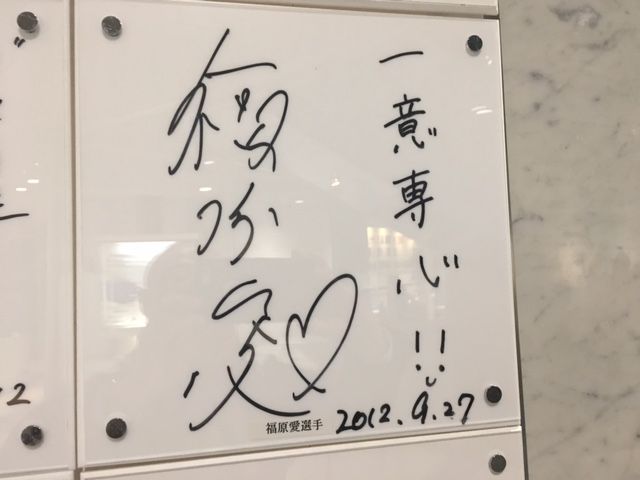 一意専心!!
福原愛
福原愛選手
2012.9.27
2